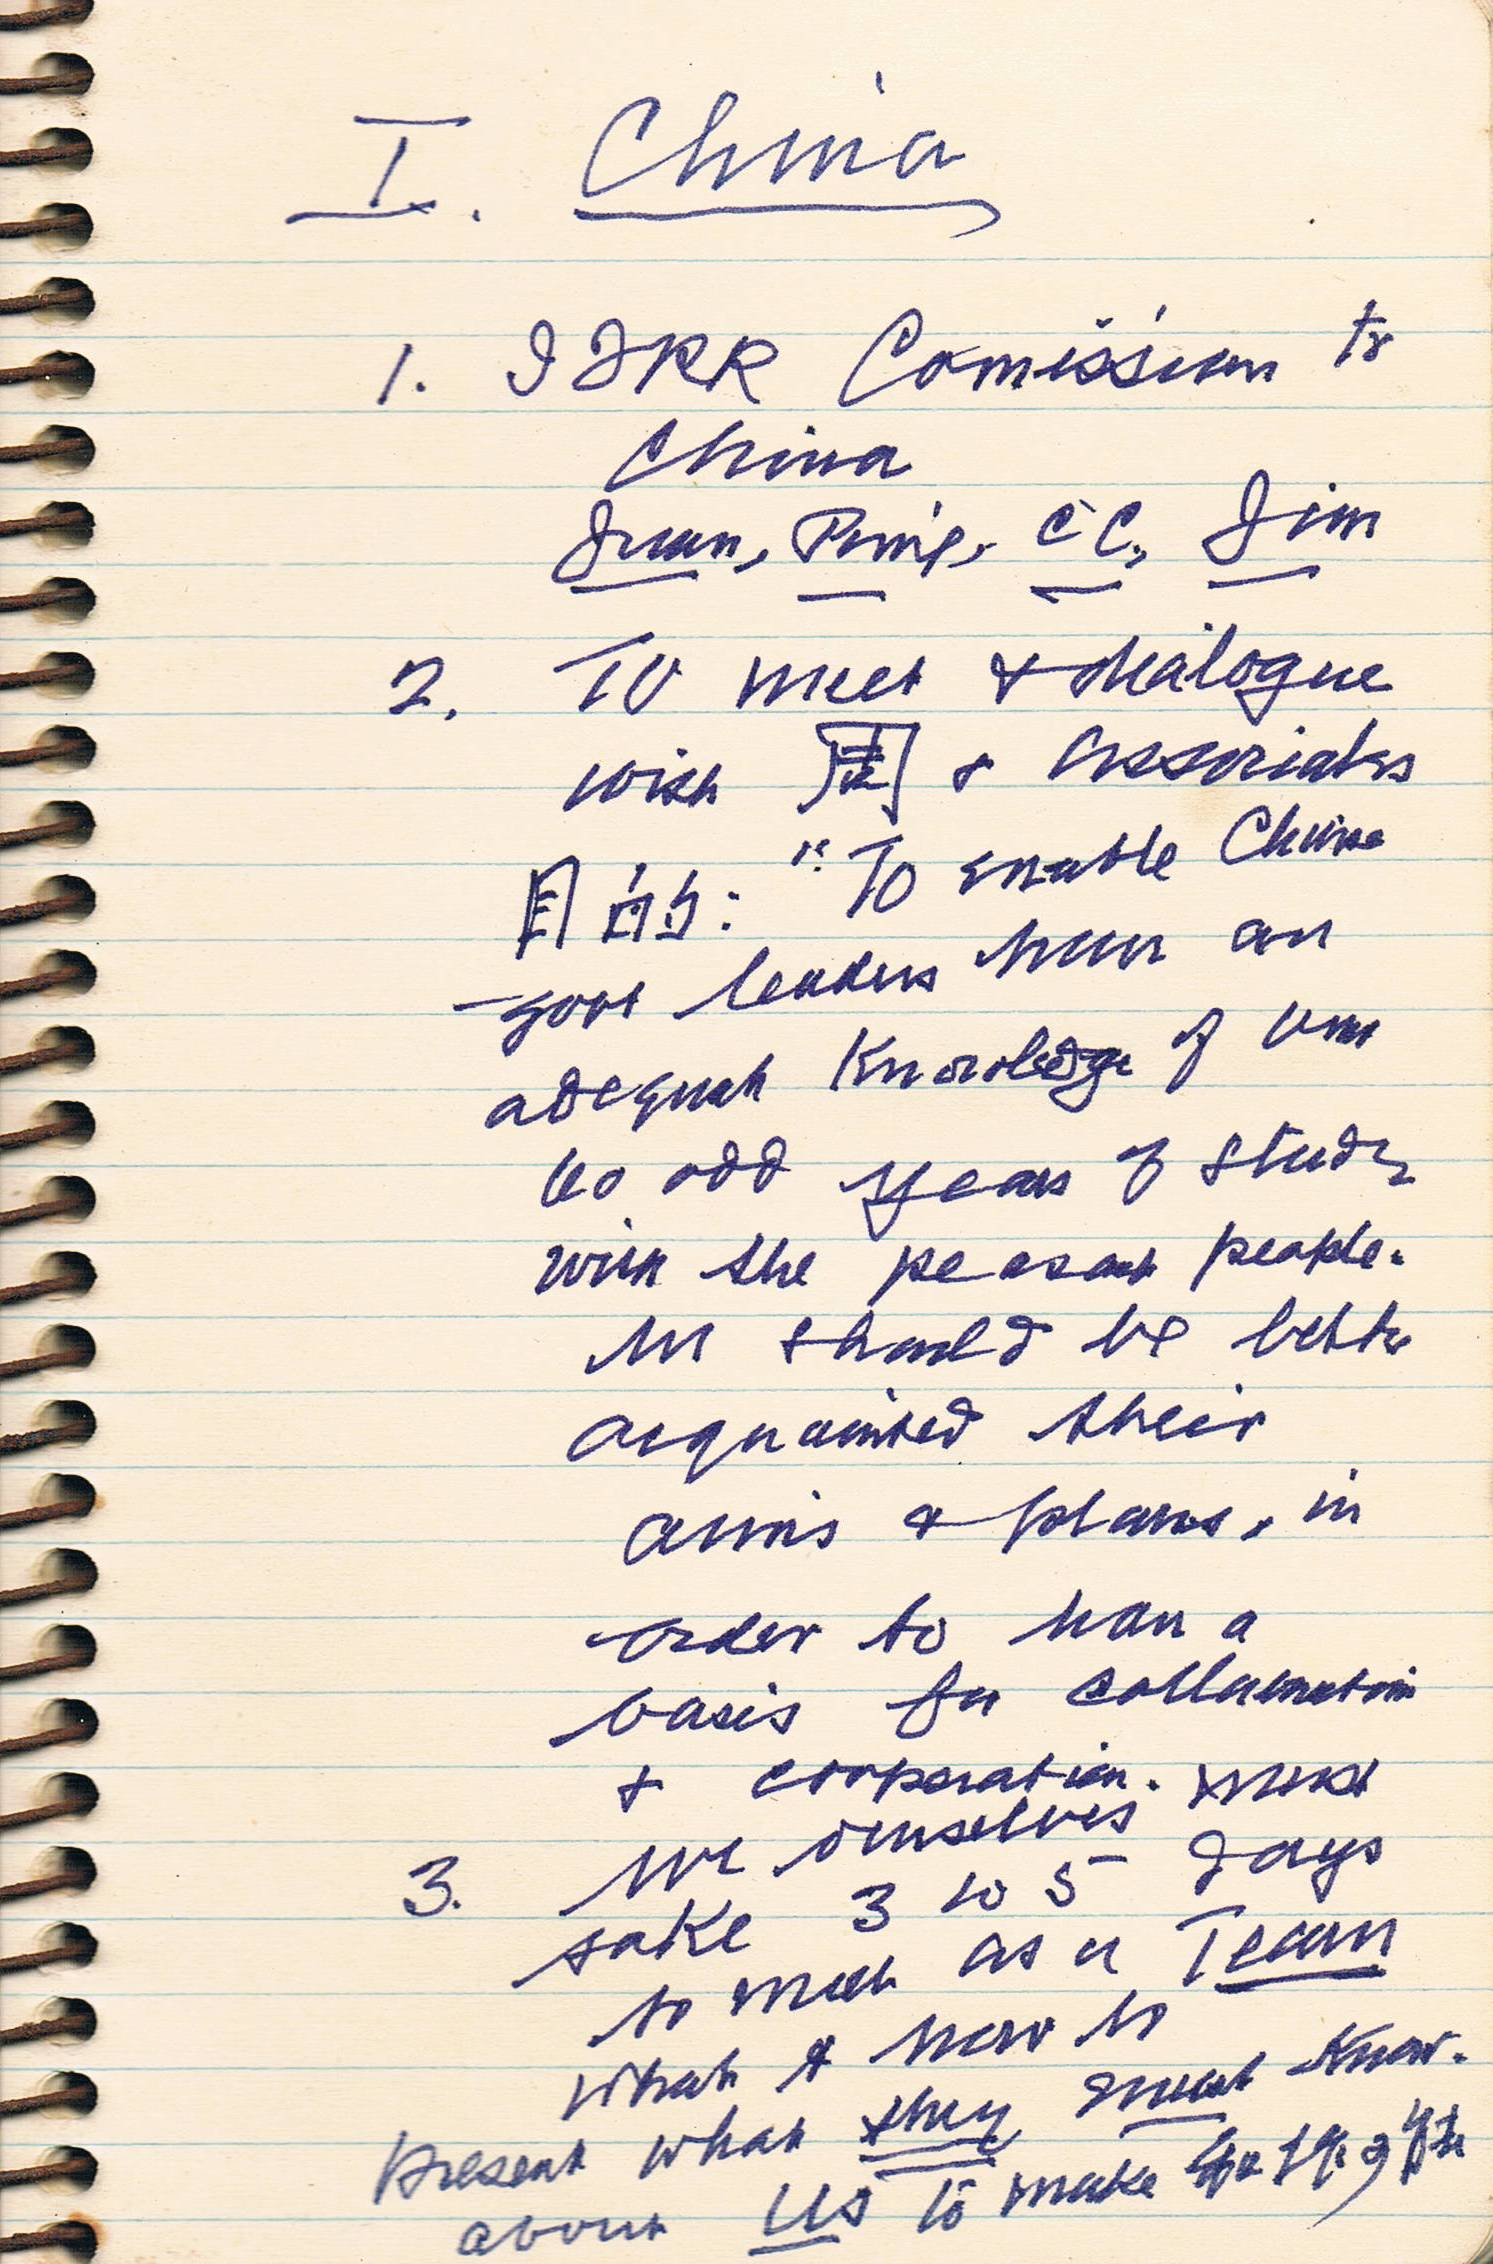 I. China
1. IIRR Comission to
China
Juan, Pning, CC, Jim
2. To meet & dialogue
with & associates
目的: "To enable Chinese
govt leaders have an
adequate knowledge of our
60 odd years of study
with the peasant people.
We should be better
acquainted their
aims & plans, in
order to have a
basis for collaboration
& cooperation.
3. We ourselves must
take 3 to 5 days
to meet as a Team
what & how to
present what they must know.
about us to make